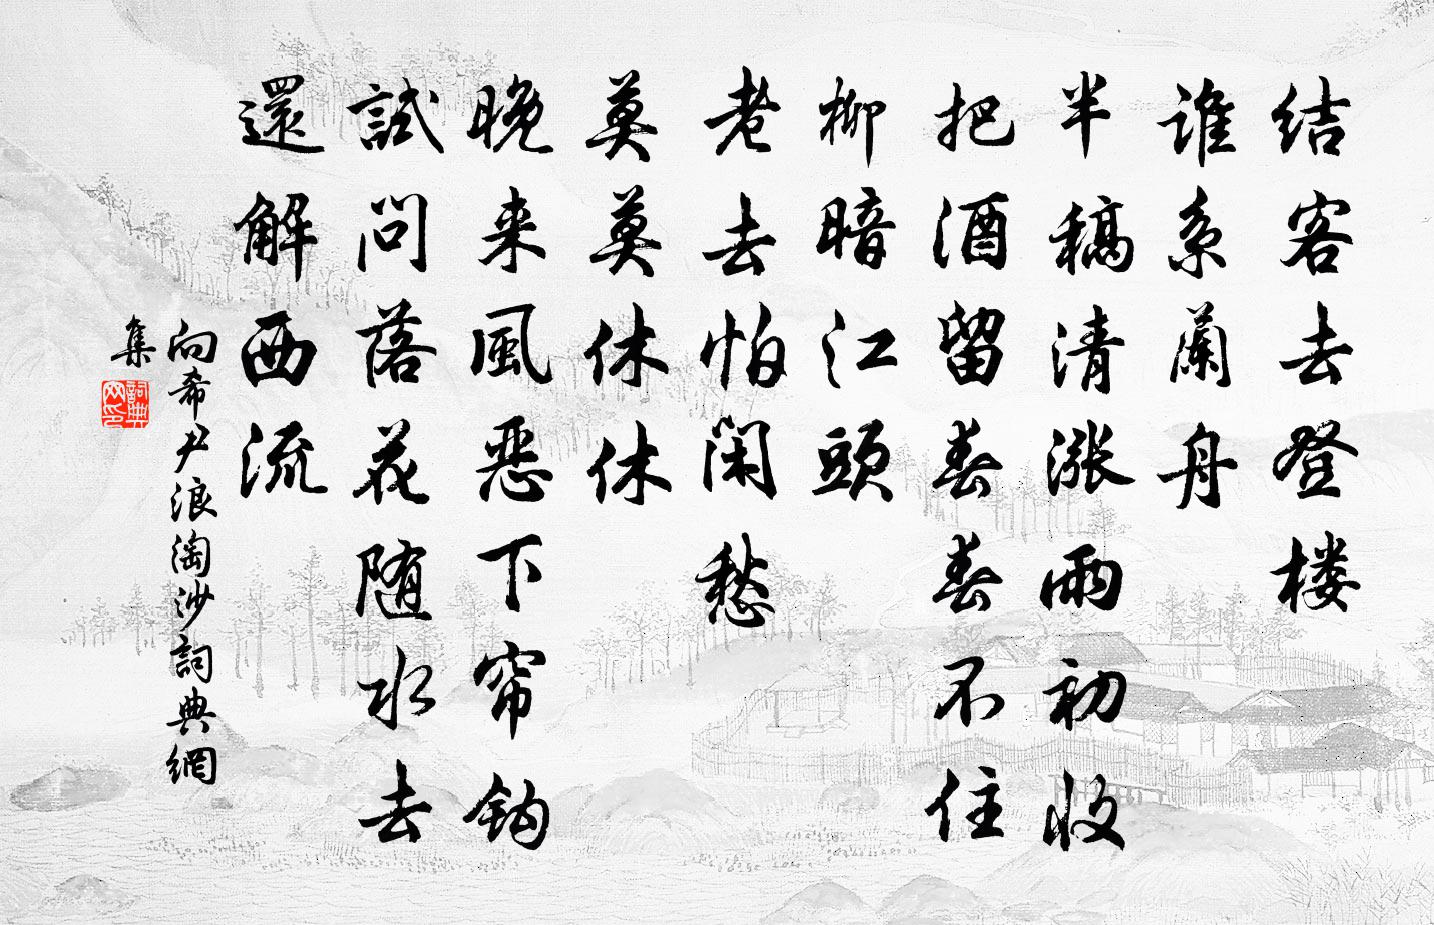 结客去登楼
谁系蘭舟
半稿清漲雨初收
把酒留春春不住
柳暗江頭
老去怕闲愁
莫莫休休
晚来風恶下帘钩
試问落花随水去
還解西流
向希尹浪淘沙詞典網
集
詞典網印